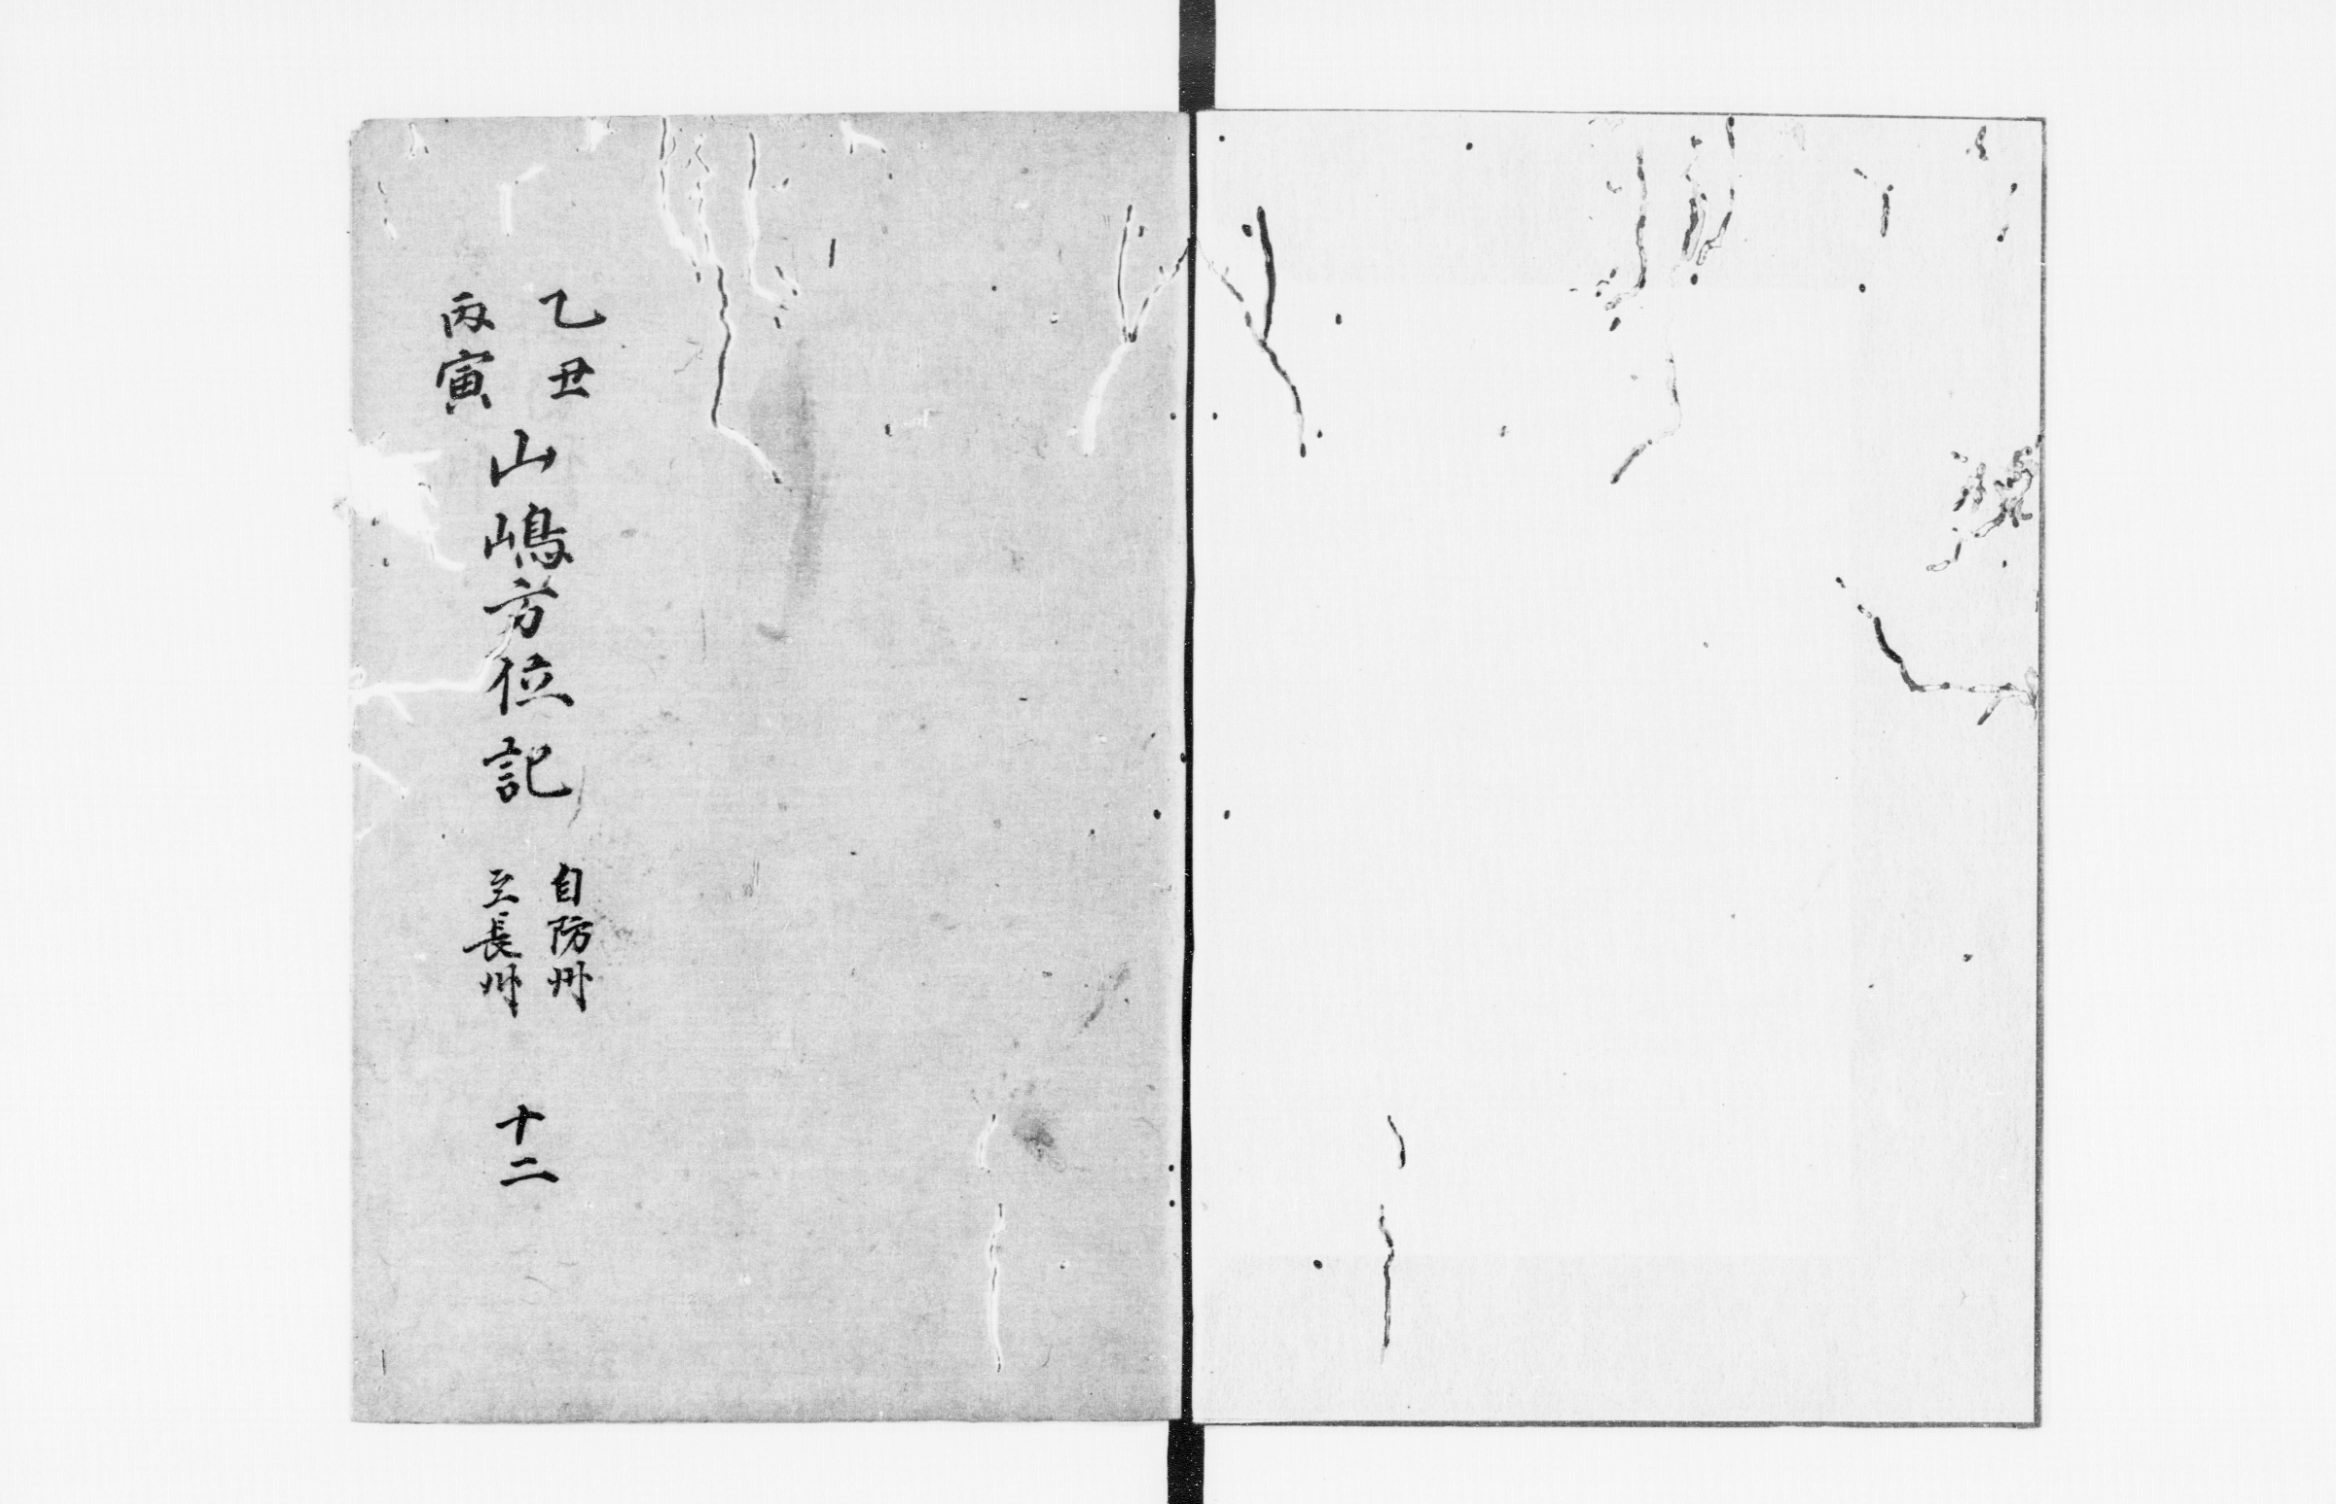 乙丑
丙寅
山嶋方位記
自防州
至長州
十二